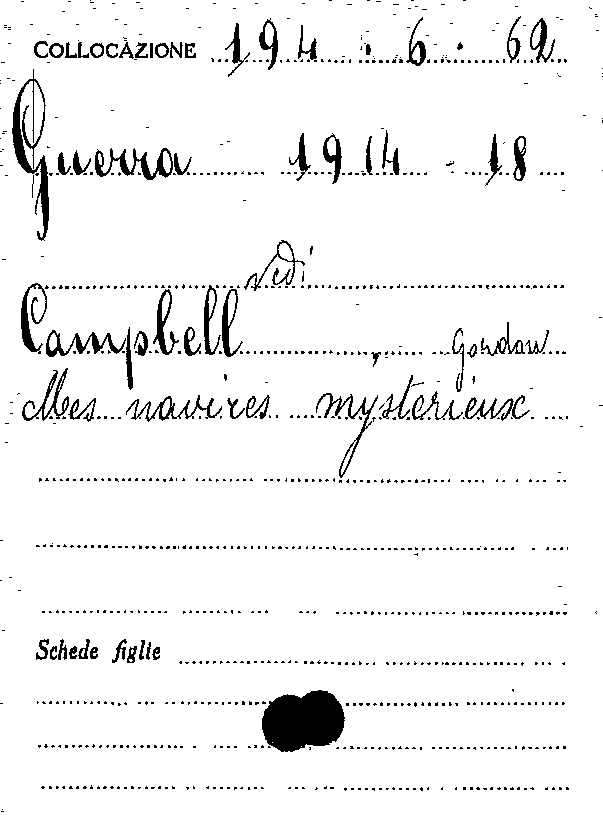 COLLOCAZIONE 194.6.62
Guerra 1914-18
vedi
Campbell, Gordon
Mes navires mystérieux
Schede figlie